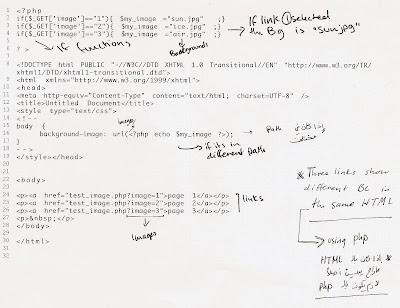 1 <?php
2 if($_GET['image']=="1"){ $my_image ="sun.jpg" ;}
3 if($_GET['image']=="2"){ $my_image ="ice.jpg" ;}
4 if($_GET['image']=="3"){ $my_image ="air.jpg" ;}
5
6 ?>
If functions
Backgrounds
If link ① selected
the Bg is "sun.jpg"
7
8 <!DOCTYPE html PUBLIC "-//W3C//DTD XHTML 1.0 Transitional//EN" "http://www.w3.org/TR/
xhtml1/DTD/xhtml1-transitional.dtd">
9 <html xmlns="http://www.w3.org/1999/xhtml">
10 <head>
11 <meta http-equiv="Content-Type" content="text/html; charset=UTF-8" />
12 <title>Untitled Document</title>
13 <style type="text/css">
14 <!--
Image
15 body {
16 background-image: url(<?php echo $my_image ?>);
Path
17 }
if its in
different Path
18 -->
19 </style></head>
20
21
22 <body>
23
24 <p><a href="test_image.php?image=1">page 1</a></p>
25 <p><a href="test_image.php?image=2">page 2</a></p>
26 <p><a href="test_image.php?image=3">page 3</a></p>
27 <p>&nbsp;</p>
links
Images
28 </body>
29
30 </html>
31
32
* Three links show
different BG in
the same HTML
using php
HTML
Php